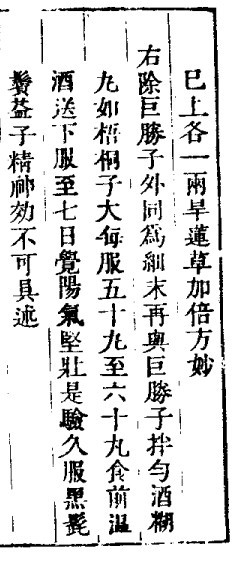 巳上各一兩旱蓮草加倍方妙
右除巨勝子外同爲細末再與巨勝子拌勻酒糊
丸如梧桐子大每服五十丸至六十丸食前溫
酒送下服至七日覺陽氣堅壯是驗久服黑髭
鬢益子精神効不可具述